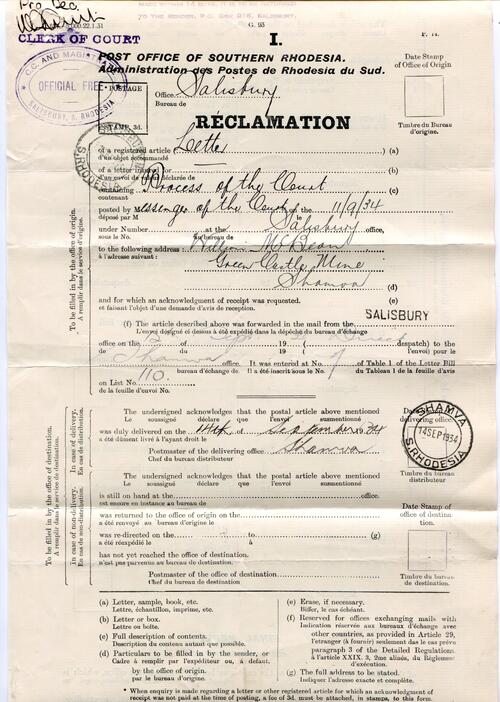 Pro Deo.
CLERK OF COURT
TO THE SENDER, P.O. BOX 215, SALISBURY.
G. 93
F. 14.
I.
POST OFFICE OF SOUTHERN RHODESIA.
Administration des Postes de Rhodesia du Sud.
Date Stamp
of Office of Origin
C.C. AND MAGISTRATE
OFFICIAL FREE
SALISBURY, S. RHODESIA
POSTAGE
STAMP, 3d.
Office Salisbury
Bureau de
RÉCLAMATION
Timbre du Bureau
d'origine.
S. RHODESIA
of a registered article Letter (a)
d'un objet recommandé
of a letter insured for (b)
d'un envoi de déclarée de
containing Process of the Court (c)
contenant
posted by Messenger of the Court of the 11/9/34
déposé par M
under Number at the Salisbury office,
sous le No. bureau de
to the following address William McBean
à l'adresse suivante :
Green Castle Mine
Shamva (d)
(e)
and for which an acknowledgment of receipt was requested.
et faisant l'objet d'une demande d'avis de reception.
SALISBURY
(f) The article described above was forwarded in the mail from the
L'envoi désigné ci dessus a été expédié dans la dépêche du bureau d'échange
office on the 12 of 19 ( Direct despatch) to the
de de du 19 ( l'envoi) pour le
Shamva office. It was entered at No. 9 of Table 1 of the Letter Bill
bureau d'échange. Il a été inscrit sous le No. du Tableau 1 de la feuille d'avis
on List No. 110
de la feuille d'envoi No.
To be filled in by the office of origin.
A remplir dans le service d'origine.
The undersigned acknowledges that the postal article above mentioned
Le soussigné déclare que l'envoi susmentionné
was duly delivered on the 14th of September 1934
a été dûment livré à l'ayant droit le
Postmaster of the delivering office Shamva
Chef du bureau distributeur
Date Stamp of
delivering office
SHAMVA
14 SEP 1934
S. RHODESIA
Timbre du bureau
distributeur
In case of delivery.
En cas de distribution.
The undersigned acknowledges that the postal article above mentioned
Le soussigné déclare que l'envoi susmentionné
is still on hand at the office.
est encore en instance au bureau de
was returned to the office of origin on the
a été renvoyé au bureau d'origine le
was re-directed on the to (g)
a été réexpédié le à
has not yet reached the office of destination.
n'est pas parvenu au bureau de destination.
Postmaster of the office of destination
Chef du bureau de destination
Date Stamp of
office of destina-
tion.
Timbre du bureau
de destination.
In case of non-delivery.
En cas de non-distribution.
To be filled in by the office of destination.
A remplir dans le service de destination.
(a) Letter, sample, book, etc.
Lettre, échantillon, imprime, etc.
(b) Letter or box.
Lettre ou boîte.
(c) Full description of contents.
Description du contenu autant que possible.
(d) Particulars to be filled in by the sender, or
Cadre à remplir par l'expéditeur ou, à defaut,
by the office of origin
par le bureau d'origine.
(e) Erase, if necessary.
Biffer, le cas échéant.
(f) Reserved for offices exchanging mails with
Indication réservée aux bureaux d'échange avec
other countries, as provided in Article 29,
l'étranger (à fournir) seulement dans le cas prévu
paragraph 3 of the Detailed Regulations
à l'article XXIX, 3, 2me alinéa, du Règlement
d'exécution.
(g) The full address to be stated.
Indiquer l'adresse exacte et complète.
* When enquiry is made regarding a letter or other registered article for which an acknowledgment of
receipt was not paid at the time of posting, a fee of 3d. must be attached, in stamps, to this form.